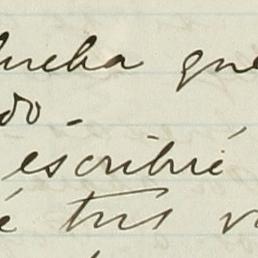 lucha que
do -
escribié
é tus v